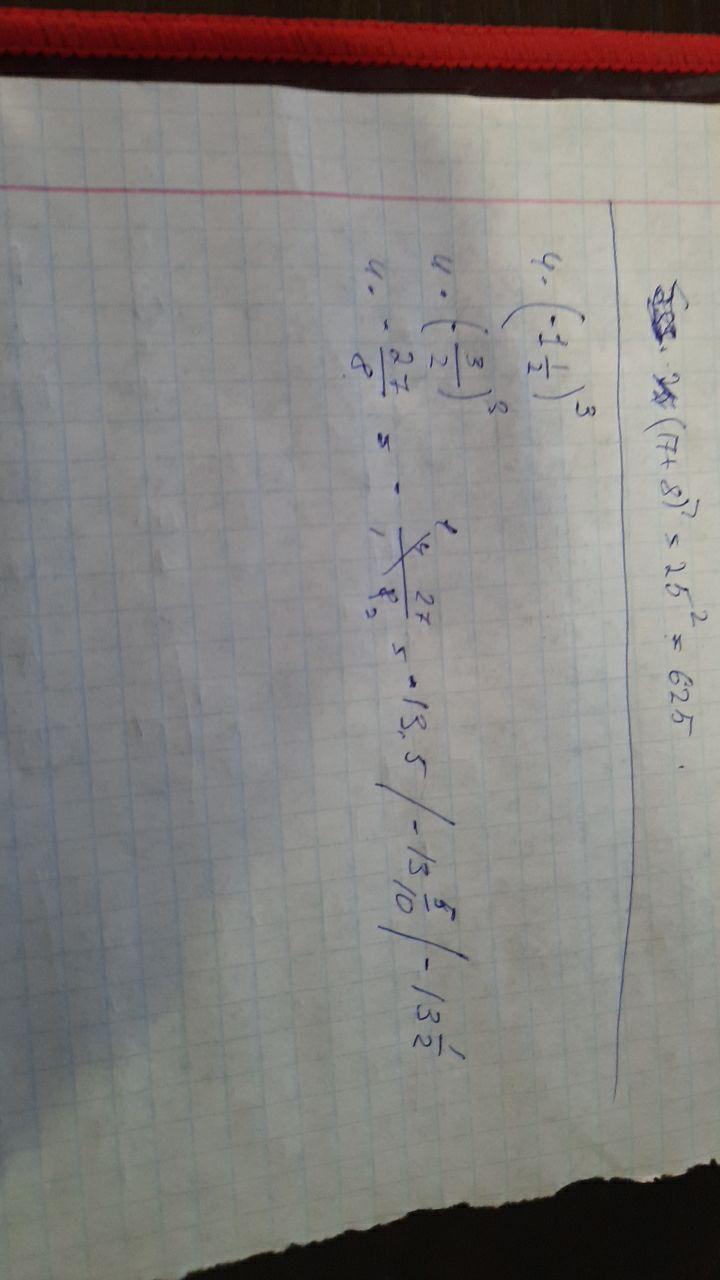 (17+8)² = 25² = 625.
4·(-1 1/2)³
4·(-3/2)³
4·-27/8 = - 4 27/8 = -13,5 / -13 5/10 / -13 1/2